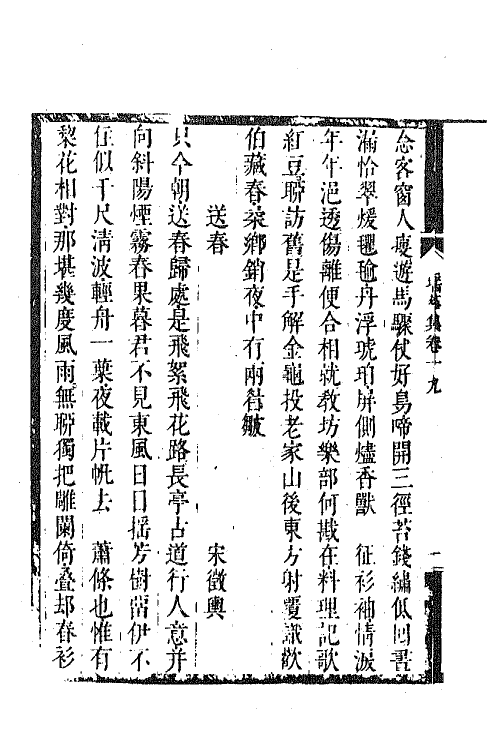 念客窗人瘦遊馬驟仗好鳥啼開三徑苔錢繡似回書
滿恰翠煖氍毹舟浮琥珀屏側燼香獸　征衫袖情淚
年年浥透傷離便合相就教坊樂部何戡在料理記歌
紅豆聯訪舊是手解金龜投老家山後東方射覆識歡
伯藏春桑鄉銷夜中有兩眉皺
送春　宋徵輿
只今朝送春歸處是飛絮飛花路長亭古道行人意并
向斜陽煙霧春果暮君不見東風日日搖芳樹留伊不
住似千尺清波輕舟一葉夜載片帆去　蕭條也惟有
梨花相對那堪幾度風雨無聊獨把雕闌倚叠却春衫
集卷十九
一